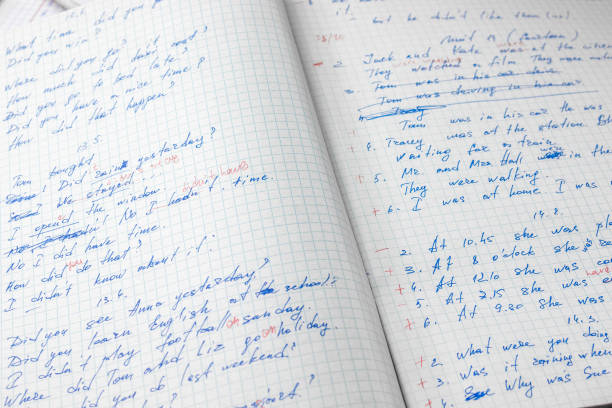 What time did you go
Did you win?
Where did you go?
How much did it cost?
Did you go to bed late?
Did you have a nice time?
How did that happen?
13.5.
Tom bought
Did yesterday?
We stayed
I opened the window.
No I hadn't time.
No I did have time.
How did you do that?
I didn't know about it.
13.4.
Did you see Anna yesterday?
Did you learn English at the school?
I didn't play football on sunday.
Where did Tom and Liz go on holiday.
did you do last weekend?
it, but he didn't like them
28/30
Unit 13 (fourteen)
- 2. Jack and Kate was at the
They watched a film. They were
3. Tom was in his car
Tom was driving in his car
Tracy
Tom was in his car. He was
+ 4. Tracey was at the station. She
waiting for a train.
+ 5. Mr and Mrs Hall were in the
They were walking.
+ 6. I was at home. I was
14.2.
- 2. At 10.45 she was
+ 3. At 8 o'clock she
+ 4. At 12.10 she was
- 5. At 7.15 she was
+ 6. At 9.30 she was
14.3.
+ 2. What were you doing
+ 3. Was it raining when
+ 4. Why was Sue